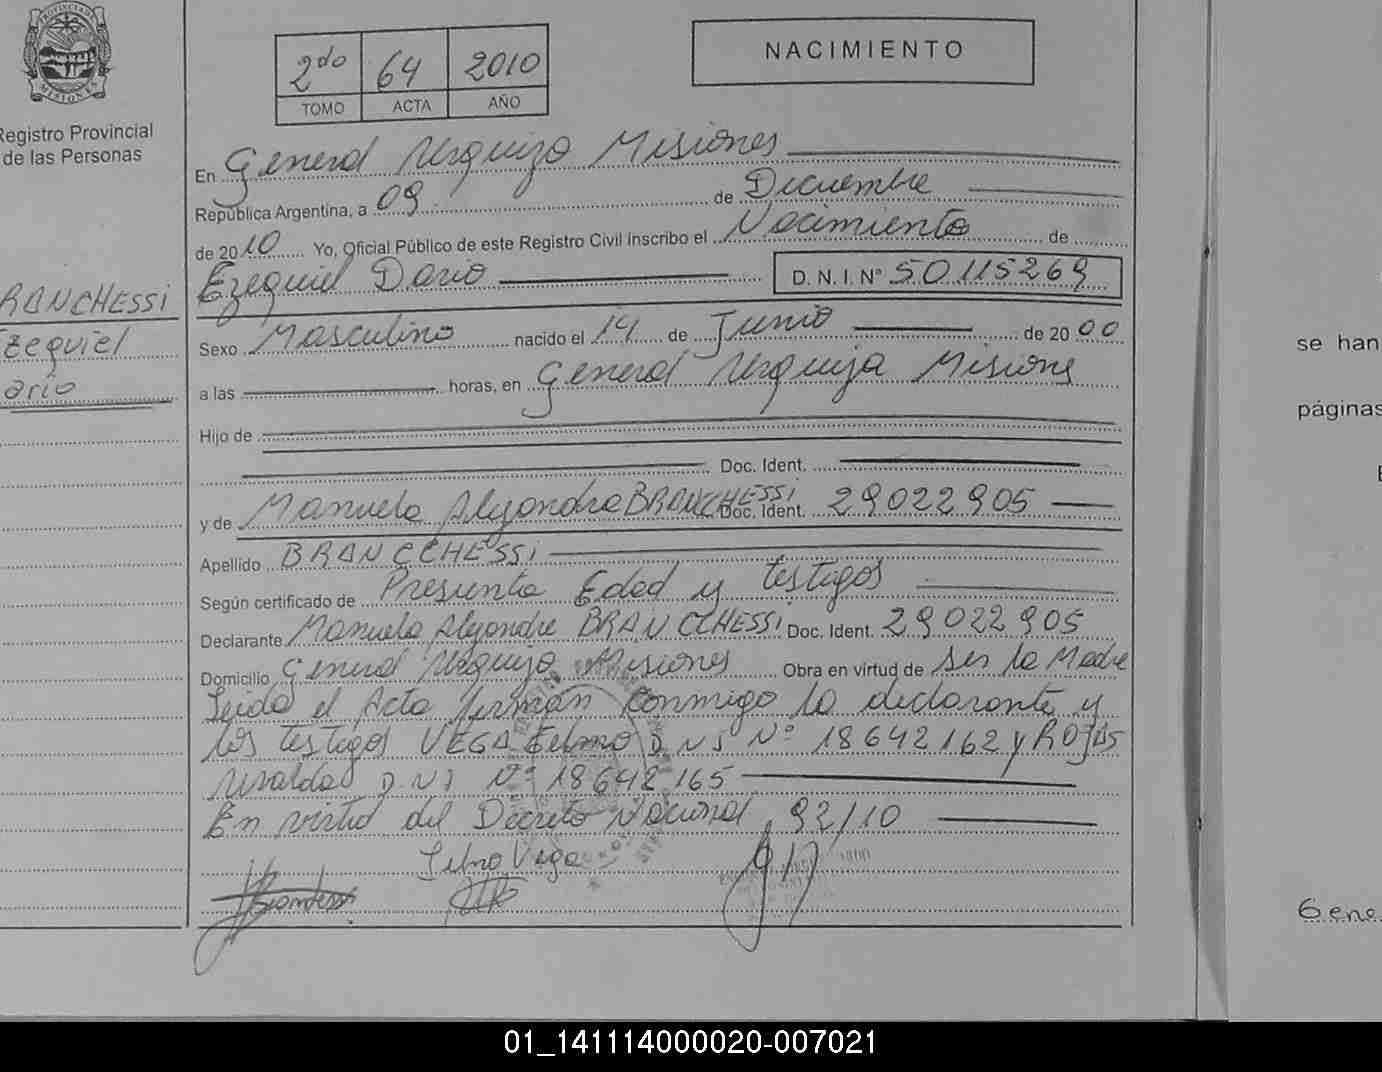 PROVINCIA DE
MISIONES
Registro Provincial
de las Personas
RANCHESSI
Ezequiel
ario
2do 64 2010
TOMO ACTA AÑO
NACIMIENTO
En General Urquiza Misiones
República Argentina, a 09 de Diciembre
de 2010 Yo, Oficial Público de este Registro Civil Inscribo el Nacimiento de
Ezequiel Dario D.N.I. Nº 50115269
Sexo Masculino nacido el 14 de Junio de 2000
a las horas, en General Urquiza Misiones
Hijo de
Doc. Ident.
y de Manuela Alejandra BRANCHESSI Doc. Ident. 29022905
Apellido BRANCCHESSI
Según certificado de Presunta Edad y testigos
Declarante Manuela Alejandra BRANCCHESSI Doc. Ident. 29022905
Domicilio General Urquiza Misiones Obra en virtud de Ser la Madre
Leida el Acta firman conmigo la declarante y
los testigos VEGA Telmo D.N.I Nº 18642162 y ROJAS
D.N.I Nº 18642165
En virtud del Decreto Nacional 92/10
Telmo Vega
se han
páginas
Gene
01_141114000020-007021